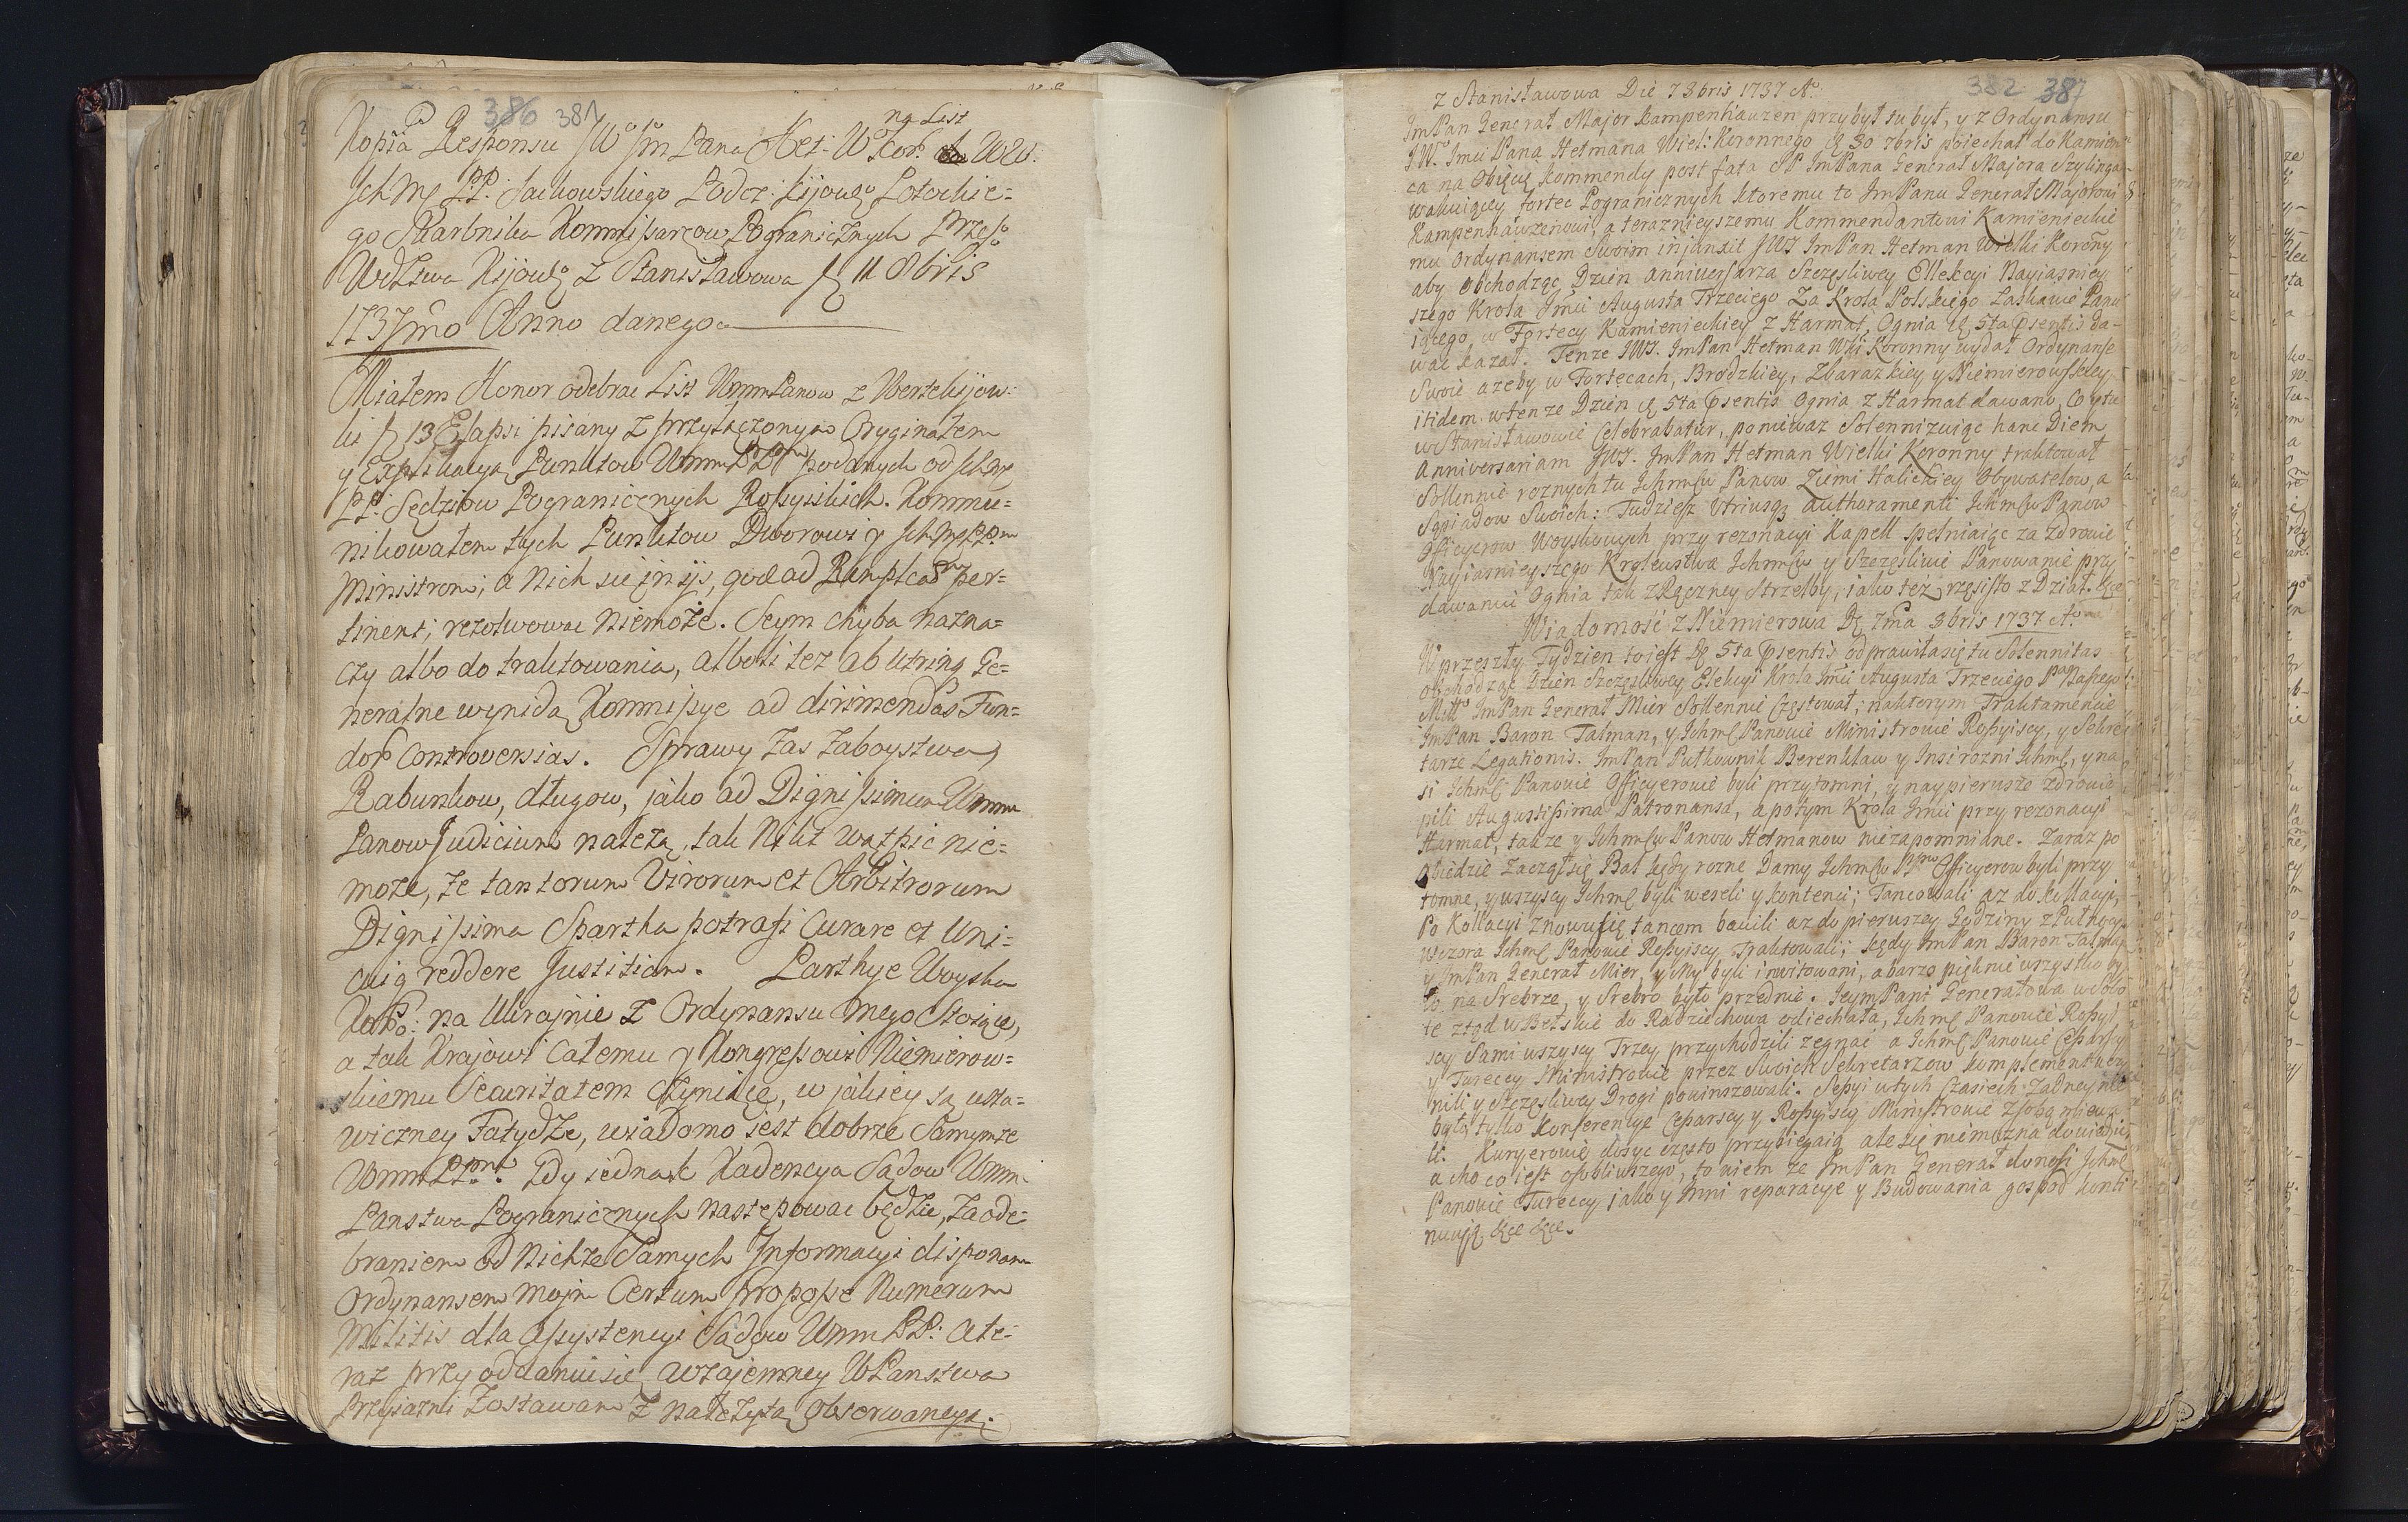 386 381
na List
Kopia Responsu JWo Jm Pana Het: W. Kor. WW.
IchMę PP. Sachowskiego Podcz: Kijowgo Potockie=
go Skarbnika Kommisarzow Pogranicznych Przeso
Wdztwa Kijowgo z Stanisławowa D 11 8bris
1737mo Anno danego
Miałem Honor odebrac List Wmm Panow z Wertekijow:
ki D 13 Elapsi pisany z przyłączonym Oryginałem
y Explikacyą Punktow Wmm PP podanych od IchMę
PP. Sędziow Pogranicznych Rossyiskich. Kommu=
nikowałem tych Punktow Dworowi y IchMę PPm
Ministrom; a Nich się in ijs, quae ad Remplcam per=
tinent; rezolwowac Niemoże. Seym chyba nazna=
czy albo do traktowania, alboli tez ab utrinq Ge=
neralne wynidą Kommissye ad dirimendas Fun=
dor. Controversias. Sprawy zas zaboystwa,
Rabunkow, długow, jako ad Dignissimum Wmm
Panow Judicium należą, tak Nikt wątpic nie=
może, że tantorum Virorum et Arbitrorum
Dignissima Spartha potrafi Curare et Uni=
cuiq reddere Justitiam. Parthye Woyska
Koro: na Ukrajnie z Ordynansu mego Stoiące,
a tak Krajowi całemu y Kongressowi Niemirow=
skiemu Securitatem czyniące, w jakiey są usta=
wiczney Fatydze, wiadomo iest dobrze Samymze
Wmm PPnm. Gdy iednak Kadencya Sądow Wmm
Panstwa Pogranicznych następowac będzie, za ode=
braniem od Nichze Samych Informacyi disponam
Ordynansem moim Certum pro posse Numerum
Militis dla Assystencyi Sądow Wmm PP: a te=
raz przy oddaniu się wzajemney WPanstwa
Przyiazni Zostawam z należytą obserwancyą.
382 387
z Stanisławowa Die 7 8bris 1737 Ao
ImPan Generał Major Kampenhauzen przybył tu był, y z Ordynansu
JW. Imci Pana Hetmana Wiel: Koronnego D 30 7bris poiechał do Kamień
ca na Obięcie kommendy post fata SP ImPana Generał Majora Szylinga
wakuiącey fortec Pogranicznych ktoremu to ImPanu Generał Majorowi
Kampenhauzenowi, a teraznieyszemu Kommendantowi Kamienieckie
mu Ordynansem Swoim injunxit JWJ ImPan Hetman Wielki Koronny
aby obchodząc Dzien anniversarza Szczęsliwey Ellekcyi Nayiasniey
szego Krola Jmci Augusta Trzeciego Za Krola Polskiego Łaskawie Panu
iącego w Fortecy Kamienieckiey z Harmat, Ognia D 5ta Psentis da=
wac kazał. Tenze JWJ. ImPan Hetman Wki Koronny wydał Ordynanse
Swoie azeby w Fortecach, Brodzkiey, Zbarazkiey y Niemierowskiey
itidem w tenze Dzien D 5ta Psentis Ognia z Harmat dawano, Co y tu
w Stanisławowie Celebrabatur, poniewaz Solennizuiąc hanc Diem
Anniversariam JWJ. ImPan Hetman Wielki Koronny traktował
Sollennie roznych tu Ichmciw Panow Ziemi Halickiey Obywatelow, a
Sąsiadow Swoich: Tudziesz Utriusq authoramenti Ichmciw Panow
Officyerow Woyskowych przy rezonacyi Kapell spełniaiąc za Zdrowie
Nayiasnieyszego Krolewstwa Ichmciw y Szczęsliwe Panowanie przy
dawaniu Ognia tak z Ręczney Strzelby, iako też rzęsisto z Dział. &c
Wiadomość z Niemierowa D 7ma 8bris 1737 Ao
W przeszły Tydzien toiest D 5ta Psentis odprawiła się tu Solennitas
obchodząc Dzien Szczęsliwey Elekcyi Krola Imci Augusta Trzeciego Pana Naszego
Miłło ImPan Generał Mier Sollennie Częstował; naktorym Traktamencie
ImPan Baron Talman, y Ichmć Panowie Ministrowie Rossyiscy, y Sekre
tarze Legationis. ImPan Pułkownik Berenklaw y Insi rozni Ichmć, y na
si Ichmć Panowie Officyerowie byli przytomni, y naypierwsze zdrowie
pili Augustissima Patronansa, a potym Krola Imci przy rezonacyi
Harmat, takze y Ichmciw Panow Hetmanow niezapomniane. Zaraz po
obiedzie zaczął się Bal kędy rozne Damy Ichmciw PPnow Officyerow byli przy
tomne, y wszyscy Ichmć byli weseli y kontenci; Tancowali az do kollacyi,
Po Kollacyi znowu się tancem bawili az do pierwszey Godziny z Pułnocy.
Wczora Ichmć Panowie Rossyiscy Traktowali; kędy ImPan Baron Talman
y ImPan Generał Mier, y My byli inwitowani, a barzo pięknie wszystko by
ło na Srebrze, y Srebro było przednie. Ieym Pani Generałowa w sobo
te ztąd w Bełskie do Radziechowa odiechała, Ichmć Panowie Rossyi
scy Sami wszyscy Trzey przychodzili zegnac a Ichmć Panowie Cesarscy
y Tureccy Ministrowie przez Swoich Sekretarzow komplement uczy
nili y Szczęsliwey Drogi powinszowali. Sessyi w tych Czasiech Zadney nie
było tylko Konferencye Cesarscy y Rossyiscy Ministrowie Zsobą mieva
li. Kuryerowie dosyc często przybiegaią ale się niemozna dowiedzie,
a cho co iest osobliwszego, to wiem ze ImPan Generał donosi Ichmć
Panowie Tureccy iako y Inni reparacye y Budowania gospod konti
nuują &c &c.